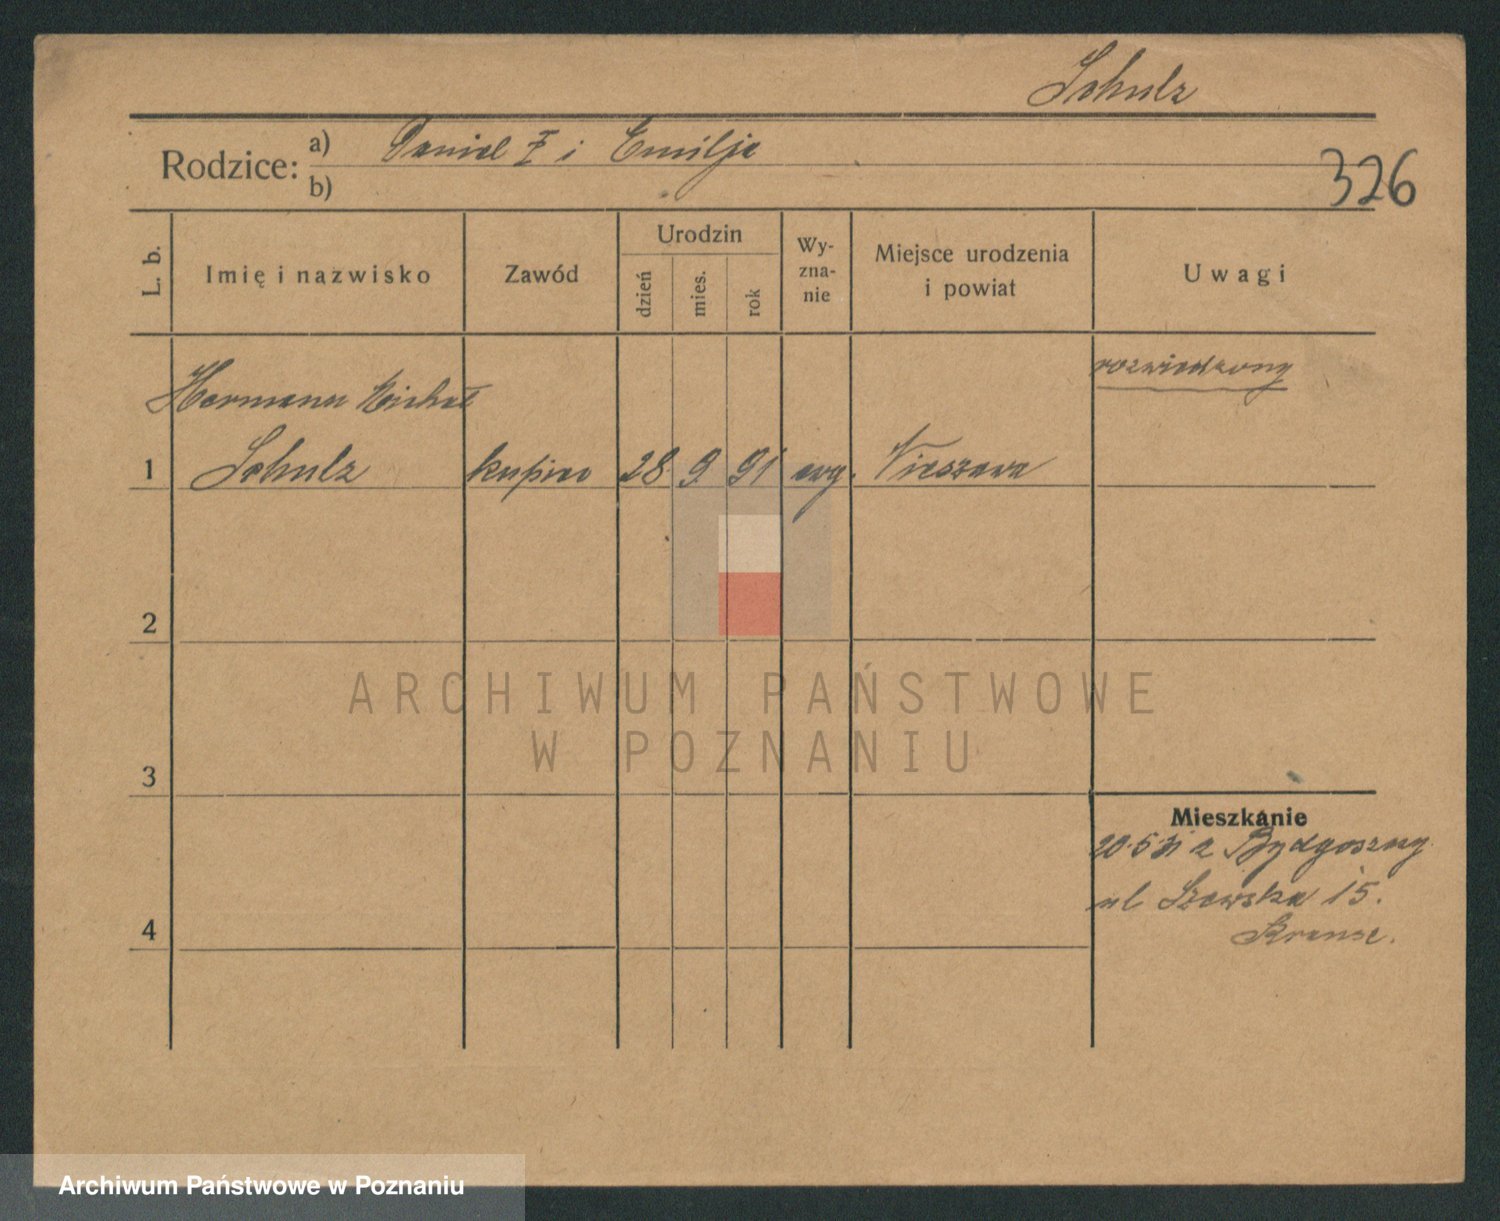 Schulz
Rodzice: a) Daniel i Emilja
b)
326
L. b.
Imię i nazwisko
Zawód
Urodzin
dzień
mies.
rok
Wy-
zna-
nie
Miejsce urodzenia
i powiat
Uwagi
rozwiedzony
Hermann Michał
1 Schulz kupiec 28 9 91 ewg. Nieszawa
2
3
4
Mieszkanie
20.5 31 z Bydgoszczy
ul Szewska 15.
Krause.
ARCHIWUM PAŃSTWOWE
W POZNANIU
Archiwum Państwowe w Poznaniu